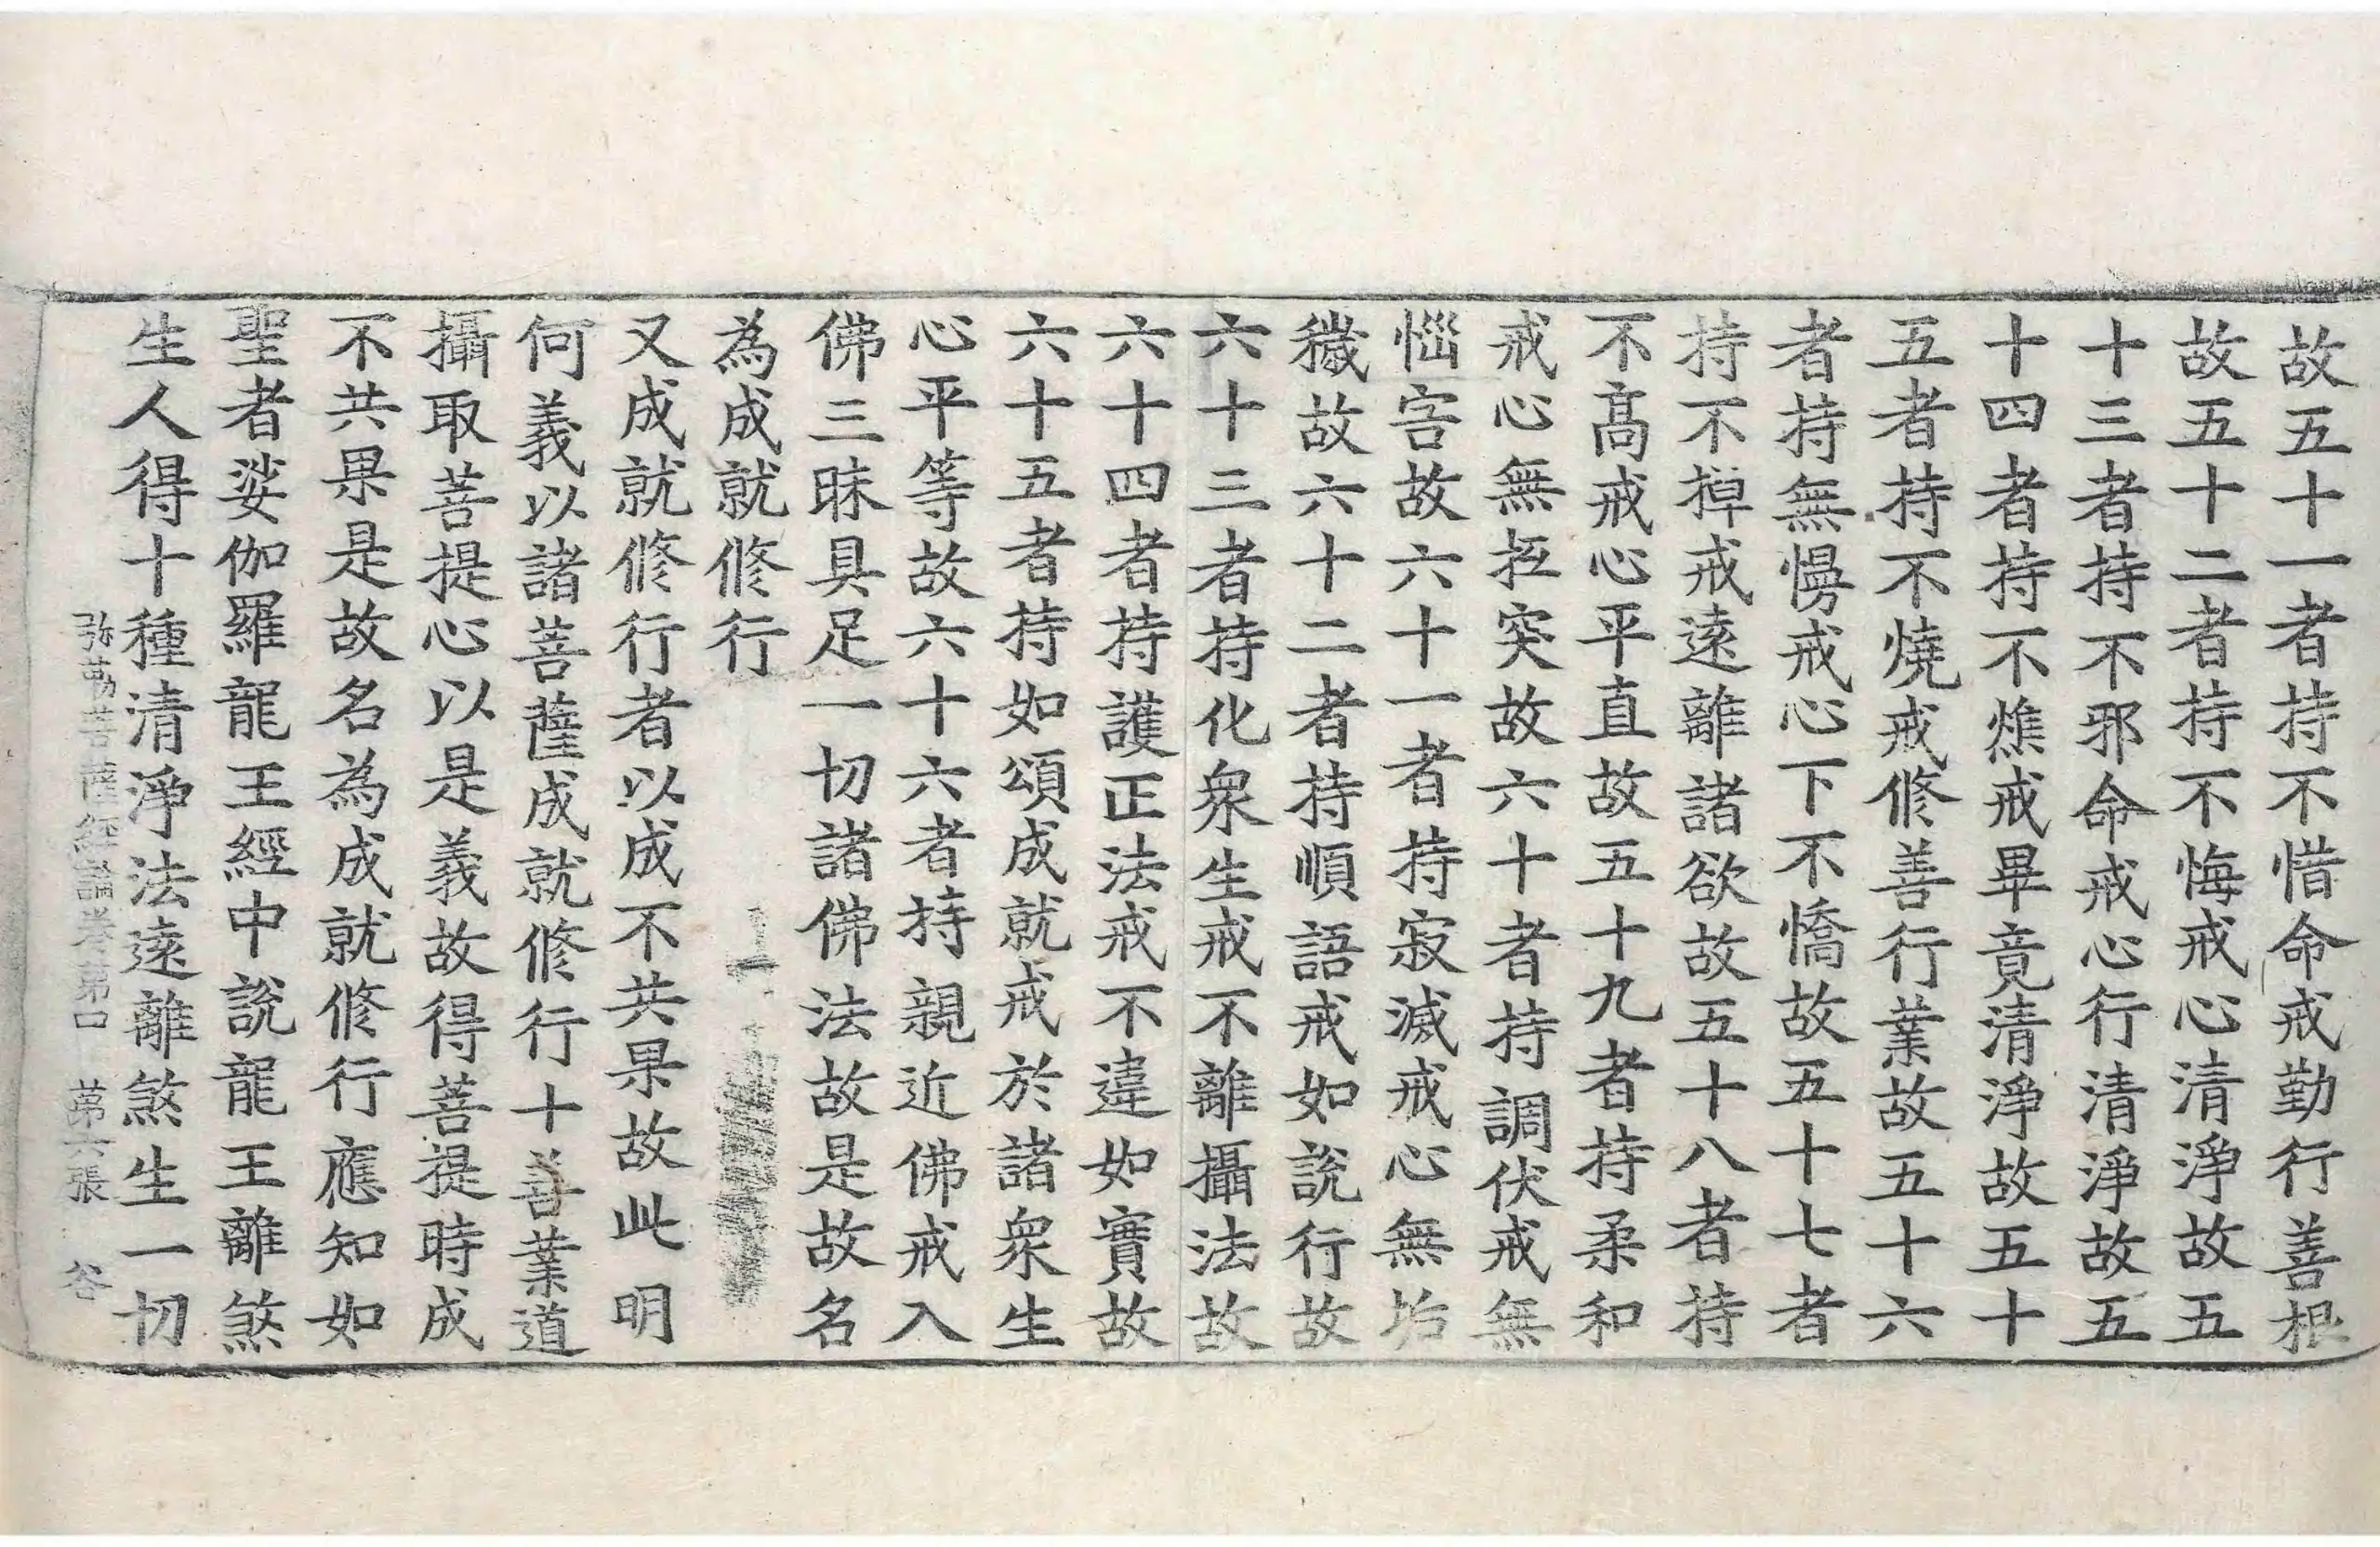 故五十一者持不惜命戒勤行善根
故五十二者持不悔戒心清淨故五
十三者持不邪命戒心行清淨故五
十四者持不燋戒畢竟清淨故五十
五者持不燒戒修善行業故五十六
者持無慢戒心下不憍故五十七者
持不掉戒遠離諸欲故五十八者持
不高戒心平直故五十九者持柔和
戒心無抂突故六十者持調伏戒無
惱害故六十一者持寂滅戒心無垢
穢故六十二者持順語戒如說行故
六十三者持化衆生戒不離攝法故
六十四者持護正法戒不違如實故
六十五者持如頌成就戒於諸衆生
心平等故六十六者持親近佛戒入
佛三昧具足一切諸佛法故是故名
為成就修行
又成就修行者以成不共果故此明
何義以諸菩薩成就修行十善業道
攝取菩提心以是義故得菩提時成
不共果是故名為成就修行應知如
聖者娑伽羅龍王經中說龍王離煞
生人得十種清淨法遠離煞生一切
弥勒菩薩經論卷第口 苐六張 谷